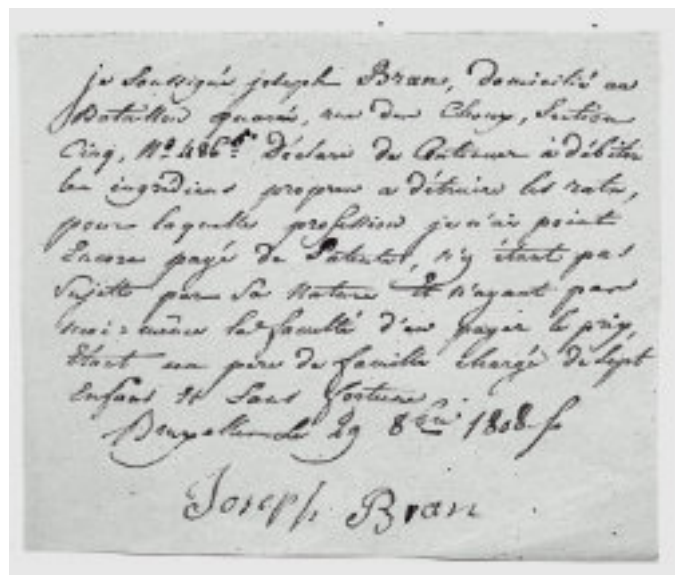 je Soussigné joseph Bran, domicilié au
Bataillon quarré, rue des Choux, Section
Cinq, N° 486 Déclare de Continuer à débiter
les ingrédiens propres a détruire les rats,
pour laquelle profession je n'ai point
Encore payé de Patente, n'y étant pas
Sujette par Sa Nature Et n'ayant par
moi-même la faculté d'en payer le prix,
Etant un pere de famille chargé de Sept
Enfans Et Sans fortune
Bruxelles Le 29 8bre 1808
Joseph Bran